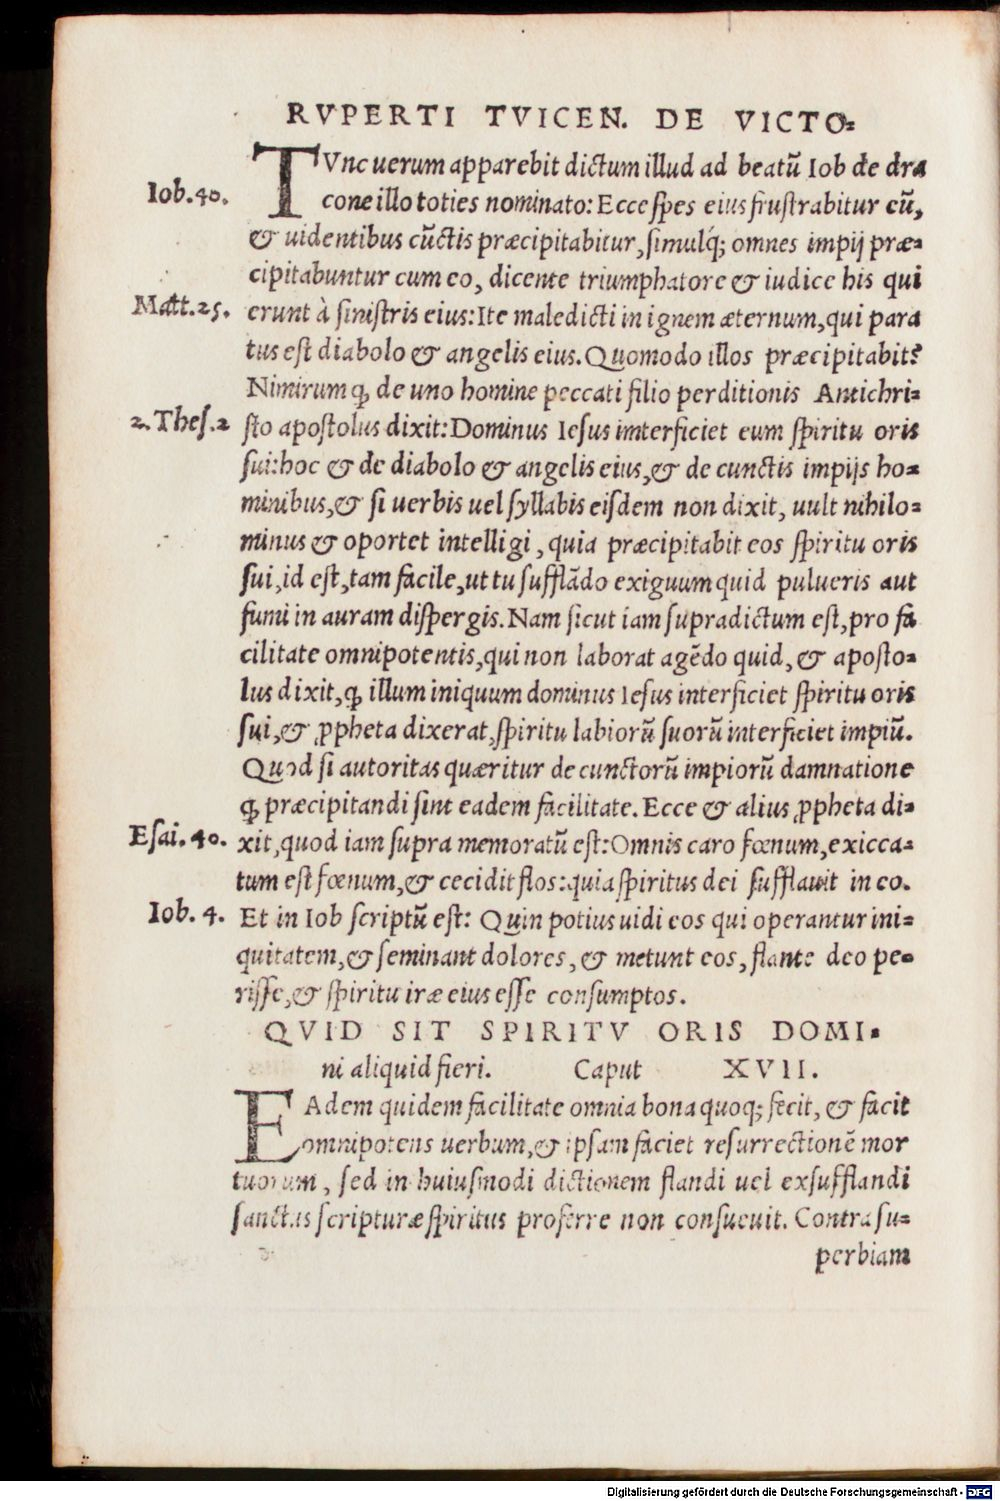 RVPERTI TVICEN. DE VICTO=
Iob.40.
TVnc uerum apparebit dictum illud ad beatũ Iob de dra
cone illo toties nominato: Ecce spes eius frustrabitur cũ,
& uidentibus cũctis præcipitabitur, simulq́; omnes impij præ=
cipitabuntur cum eo, dicente triumphatore & iudice his qui
Matt.25.
erunt à sinistris eius: Ite maledicti in ignem æternum, qui para
tus est diabolo & angelis eius. Quomodo illos præcipitabit?
Nimirum ꝙ de uno homine peccati filio perditionis Antichri=
2.Thes.2
sto apostolus dixit: Dominus Iesus imterficiet eum spiritu oris
sui: hoc & de diabolo & angelis eius, & de cunctis impijs ho=
minibus, & si uerbis uel syllabis eisdem non dixit, uult nihilo=
minus & oportet intelligi, quia præcipitabit eos spiritu oris
sui, id est, tam facile, ut tu sufflãdo exiguum quid pulueris aut
fumi in auram dispergis. Nam sicut iam supradictum est, pro fa
cilitate omnipotentis, qui non laborat agẽdo quid, & aposto=
lus dixit, ꝙ illum iniquum dominus Iesus interficiet spiritu oris
sui, & ꝓpheta dixerat, spiritu labiorũ suorũ interficiet impiũ.
Quod si autoritas quæritur de cunctorũ impiorũ damnatione
ꝙ præcipitandi sint eadem facilitate. Ecce & alius ꝓpheta di=
Esai.40.
xit, quod iam supra memoratũ est: Omnis caro fœnum, exicca=
tum est fœnum, & cecidit flos: quia spiritus dei sufflauit in eo.
Iob. 4.
Et in Iob scriptũ est: Quin potius uidi eos qui operantur ini=
quitatem, & seminant dolores, & metunt eos, flante deo pe=
risse, & spiritu iræ eius esse consumptos.
QVID SIT SPIRITV ORIS DOMI=
ni aliquid fieri. Caput XVII.
EAdem quidem facilitate omnia bona quoq; fecit, & facit
omnipotens uerbum, & ipsam faciet resurrectionẽ mor
tuorum, sed in huiusmodi dictionem flandi uel exsufflandi
sanctus scripturæ spiritus proferre non consueuit. Contra su=
perbiam
Digitalisierung gefördert durch die Deutsche Forschungsgemeinschaft - DFG